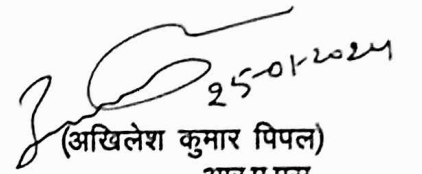 25-01-2024
(अखिलेश कुमार पिपल)